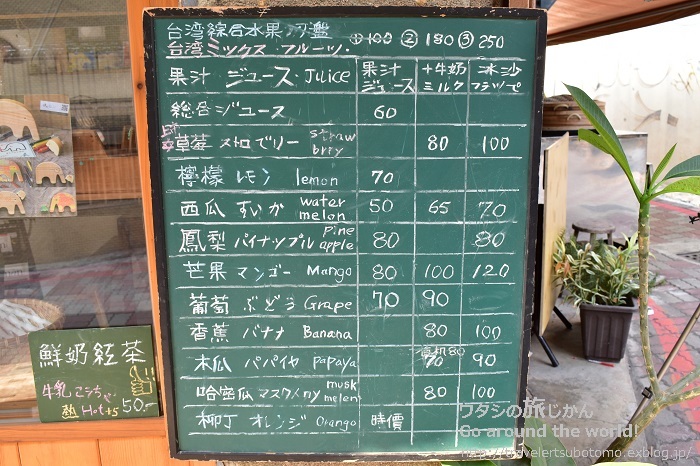 台湾綜合水果冰盤 ①100 ② 180 ③ 250
台湾ミックス フルーツ・
果汁 ジュース・Juice 果汁 ジュース +牛奶 ミルク 冰沙 フラッペ
総合ジュース 60
草莓 ストロベリー straw brry 80 100
檸檬 レモン lemon 70
西瓜 すいか water melon 50 65 70
鳳梨 パイナップル pine apple 80 80
芒果 マンゴー Mango 80 100 120
葡萄 ぶどう Grape 70 90
香蕉 バナナ Banana 80 100
木瓜 パパイヤ papaya 70 90
哈密瓜 マスクメロン musk melen 80 100
柳丁 オレンジ Orange 時價
鮮奶紅茶
牛乳
熱 Hot+5 50.-
ワタシの旅じかん
Go around the world!
http://travelertsubotomo.exblog.jp/